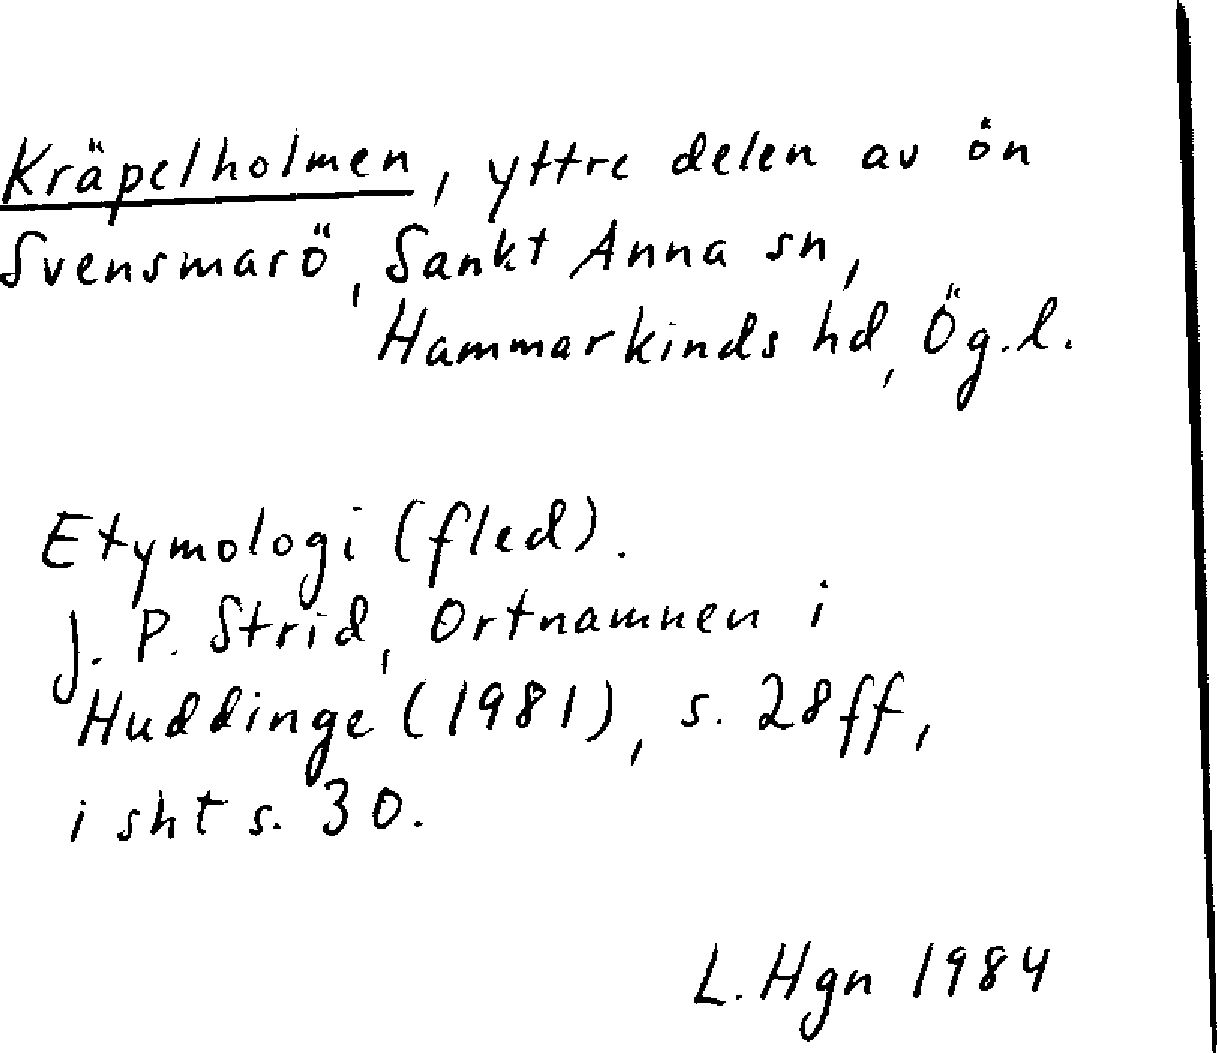 Kräpelholmen, yttre delen av ön
Svensmarö, Sankt Anna sn,
Hammarkinds hd, Ög.l.
Etymologi (fled).
J. P. Strid, Ortnamnen i
Huddinge (1981), s. 28ff,
i sht s. 30.
L. Hgn 1984